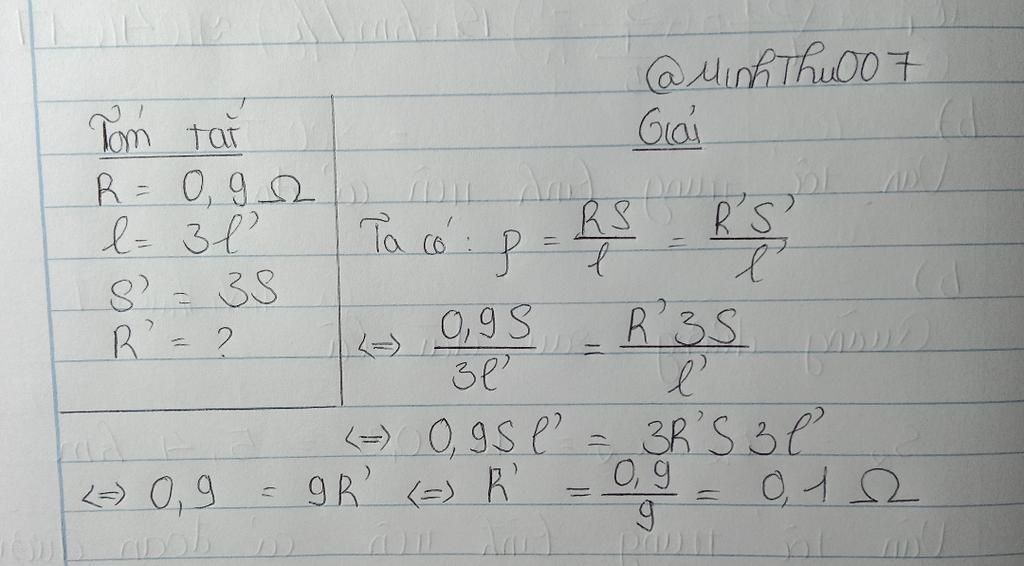 @MinhThu007
Tóm tắt
R = 0,9 Ω
l = 3l'
S' = 3S
R' = ?
Giải
Ta có: ρ = RS/l = R'S'/l'
<=> 0,9S/3l' = R'3S/l'
<=> 0,9Sl' = 3R'S3l'
<=> 0,9 = 9R' <=> R' = 0,9/9 = 0,1 Ω